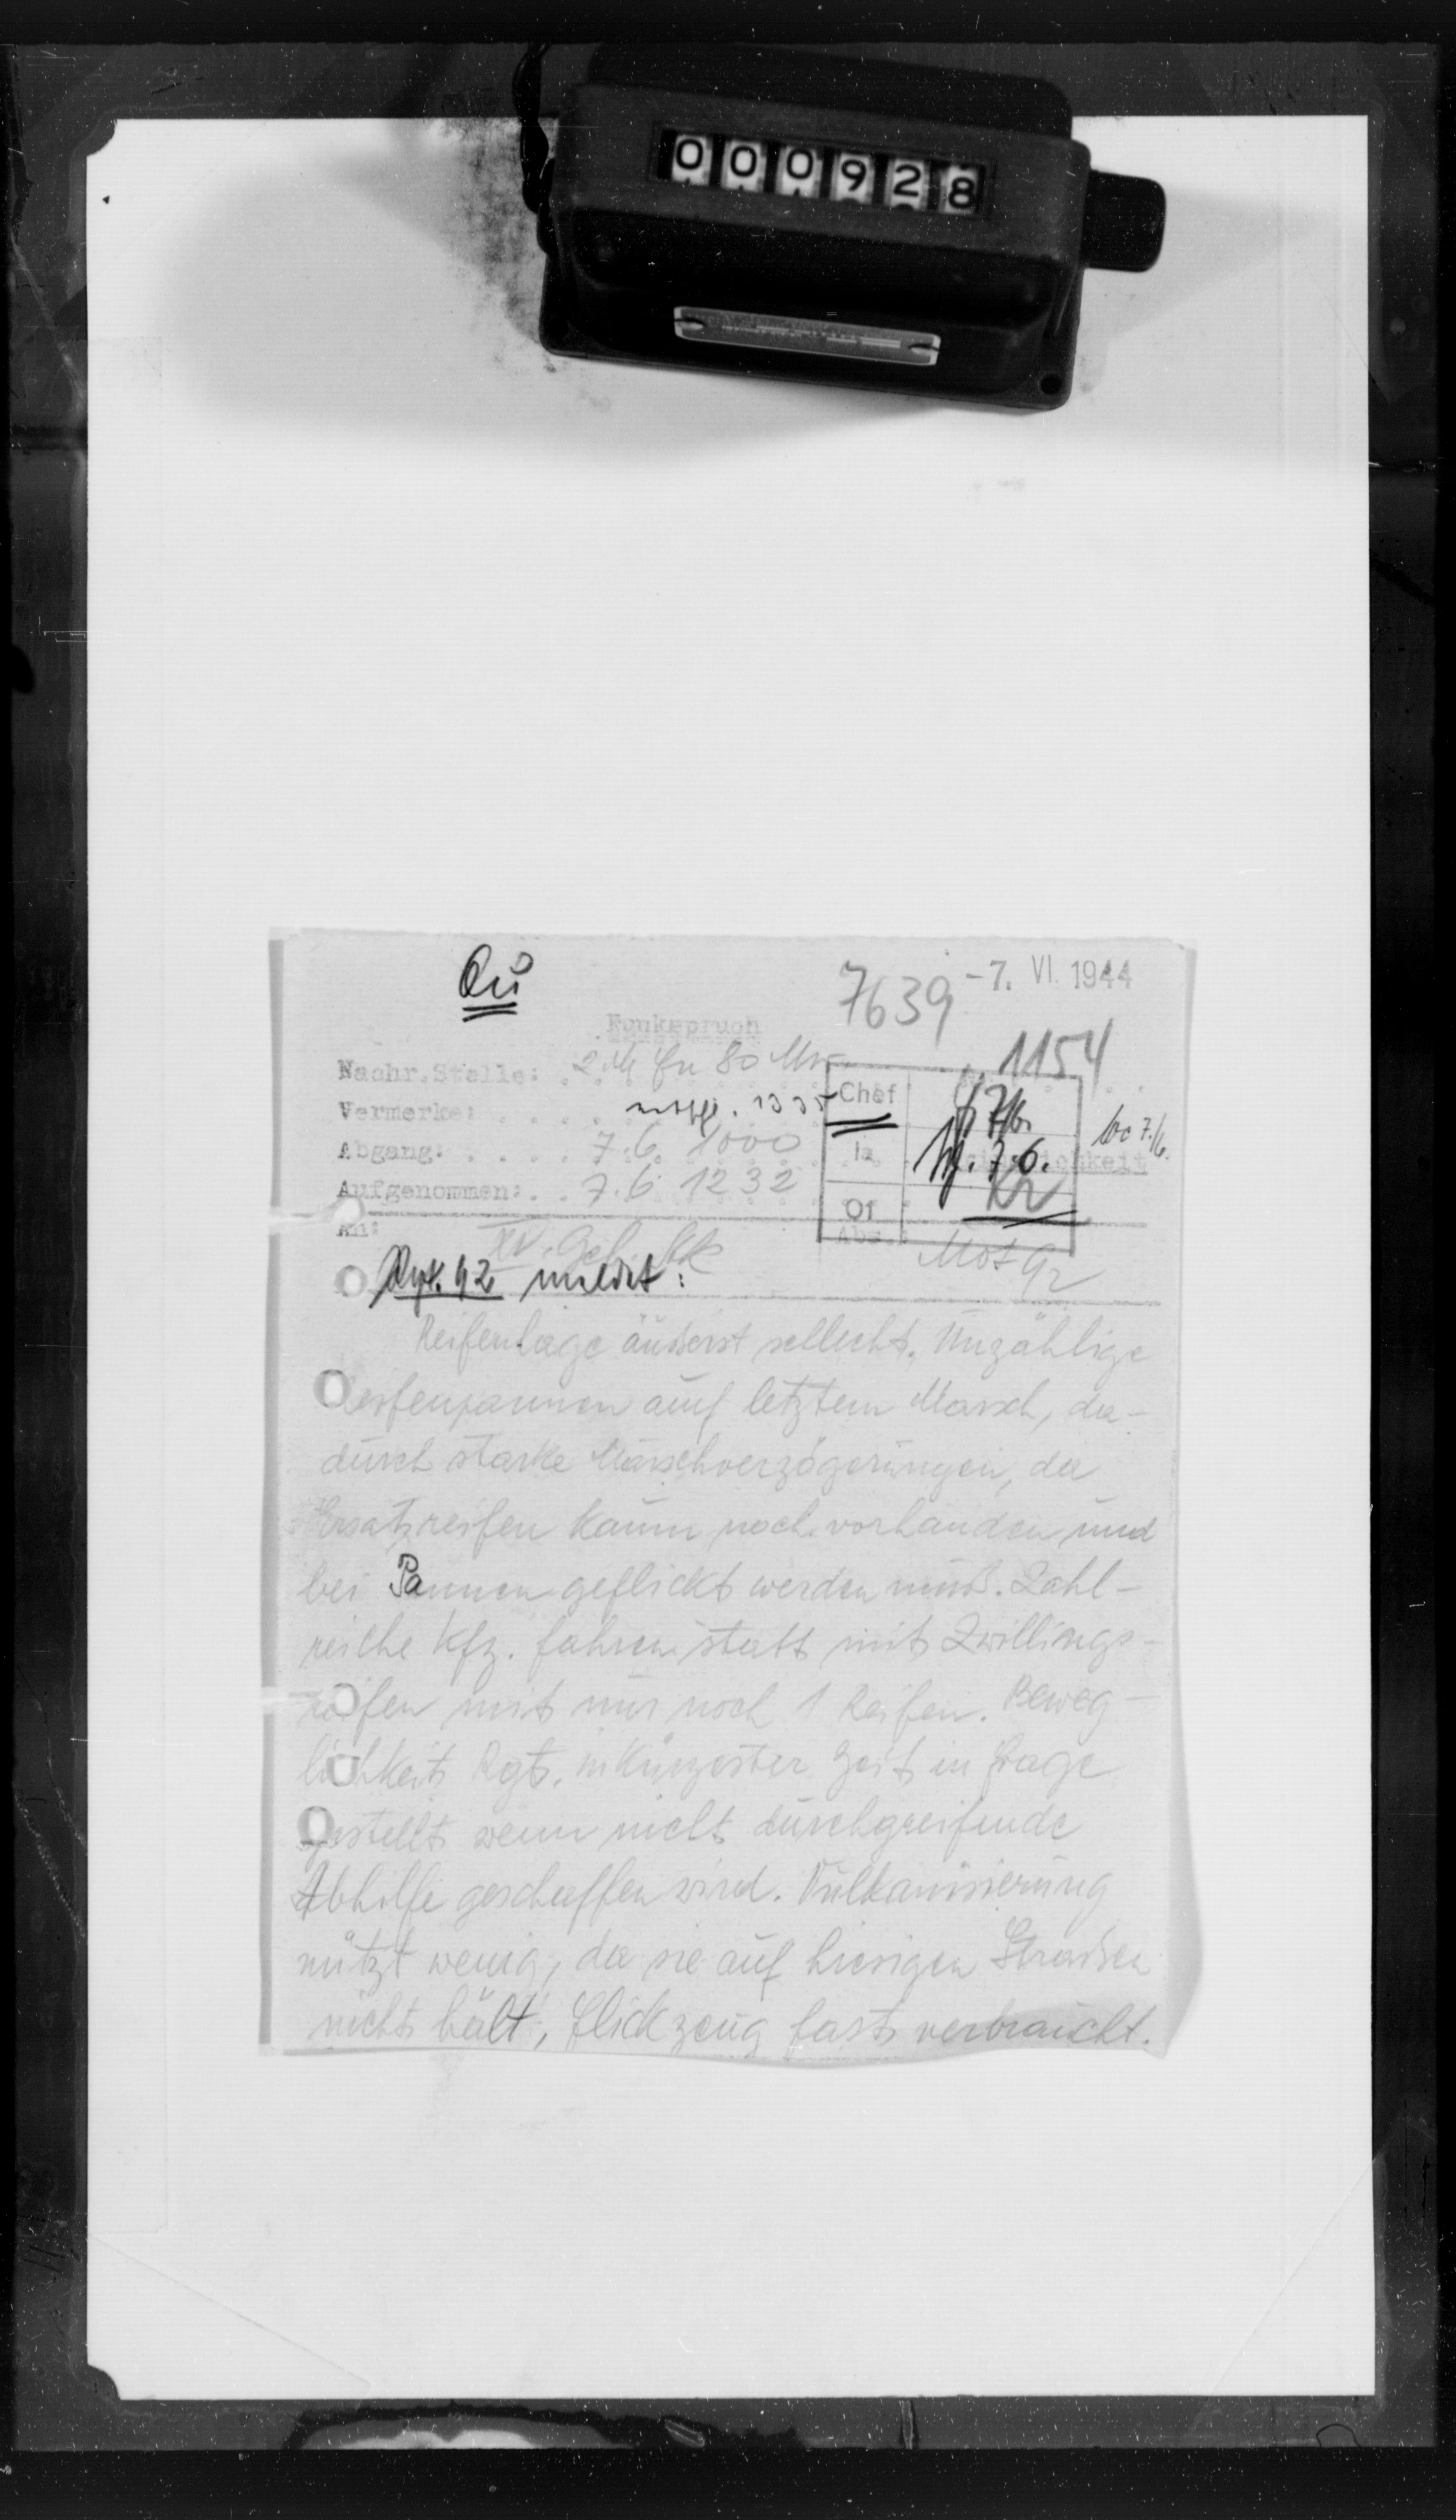 000928
Qu
7639 -7. VI. 1944
Funkspruch
1154
Nachr.Stelle:
Chef
Vermerke: 1335
7/6.
7./6.
Abgang: 7.6. 1000
Ia 7.6.
Aufgenommen: 7.6. 1232
O1
An: XV. Geb. AK
Abs.:
Rgt. 92 meldet:
Reifenlage äußerst schlecht. Unzählige
Reifenpannen auf letztem Marsch, da-
durch starke Marschverzögerungen, da
Ersatzreifen kaum noch vorhanden und
bei Pannen geflickt werden muß. Zahl-
reiche Kfz. fahren statt mit Zwillings-
reifen mit nur noch 1 Reifen. Beweg-
lichkeit Rgt. in kürzester Zeit in Frage
gestellt wenn nicht durchgreifende
Abhilfe geschaffen wird. Vulkanisierung
nützt wenig, da sie auf hiesigen Straßen
nicht hält, Flickzeug fast verbraucht.